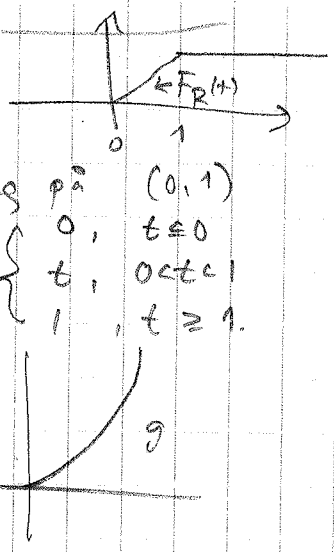 ← F_R(t)
0 1
på (0,1)
0, t ≤ 0
t, 0<t<1
1, t ≥ 1.
g